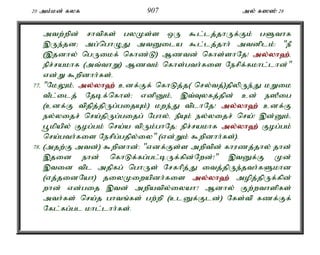 20 அம்மன் கலக 907 அல் கஸஸ் 28
அவற்றின் சாவிகள் பலமுள்ள ஒரு கூட்டத்தாருக்கும் பளுவாக
இருந்தன; அப்பொழுது அவனுடைய கூட்டத்தார் அவனிடம்: "நீ
(இதனால் பெருமைக் கொண்டு) ஆணவம் கொள்ளாதே! அல்லாஹ்,
நிச்சயமாக (அவ்வாறு) ஆணவம் கொள்பவர்களை நேசிக்கமாட்டான்"
என்று கூறினார்கள்.
77. "மேலும், அல்லாஹ் உனக்குக் கொடுத்த(செல்வத்)திலிருந்து மறுமை
வீட்டைத் தேடிக்கொள்; எனினும், இவ்வுலகத்தின் உன் நஸீபை
(உனக்கு விதித்திருப்பதையும்) மறந்து விடாதே! அல்லாஹ் உனக்கு
நல்லதைச் செய்திருப்பதைப் போல், நீயும் நல்லதைச் செய்! இன்னும்,
பூமியில் குழப்பம் செய்ய விரும்பாதே; நிச்சயமாக அல்லாஹ் குழப்பம்
செய்பவர்களை நேசிப்பதில்லை" (என்றும் கூறினார்கள்).
78. (அதற்கு அவன்) கூறினான்: "எனக்குள்ள அறிவின் காரணத்தால் தான்
இதனை நான் கொடுக்கப்பட்டிருக்கின்றேன்!" இவனுக்கு முன்
இவனை விட அதிகப் பொருள் சேகரித்து வைத்திருந்தவர்களுமான
(எத்தனையோ) தலைமுறையினர்களை அல்லாஹ் அழித்திருக்கின்
றான் என்பதை இவன் அறியவில்லையா? ஆனால் குற்றவாளிகள்
அவர்கள் செய்த பாவங்கள் பற்றி (உடனுக்குடன்) கேள்வி கணக்குக்
கேட்கப்பட மாட்டார்கள்.